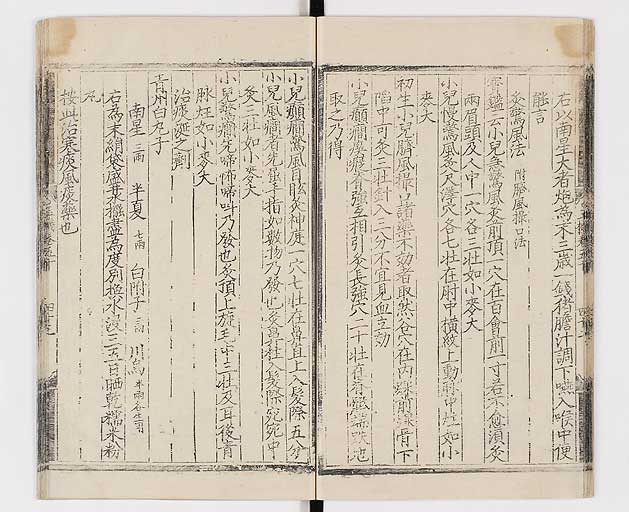 右以南星大者炮為末三歲一錢猪膽汁調下嚥入喉中便
能言
灸驚風法 附臍風撮口法
寶鑑云小兒急驚風灸前頂一穴在百會前一寸若不愈須灸
兩眉頭及人中一穴各三壯如小麥大
小兒慢驚風灸尺澤穴各七壯在肘中橫紋上動脉中炷如小
麥大
初生小兒臍風撮口諸藥不効者取然谷穴在內踝前起骨下
陷中可灸三壯針入三分不宜見血立効
小兒癲癇瘈瘲脊強互相引灸長強穴三十壯在脊骶端趺地
取之乃得
小兒癲癇驚風目眩灸神庭一穴七壯在鼻直上入髮際五分
小兒風癇者先屈手指如數物乃發也灸鼻柱髮際宛宛中
灸三壯如小麥大
小兒驚癇先啼怖啼叫乃發也灸頂上旋毛中三壯及耳後青
脉炷如小麥大
治痰涎之劑
青州白丸子
南星 三兩 半夏 七兩 白附子 二兩 川烏 半兩各生用
右為末絹袋盛井水擺盡為度別換水浸三五日晒乾糯米粉
丸
按此治寒痰風痰藥也